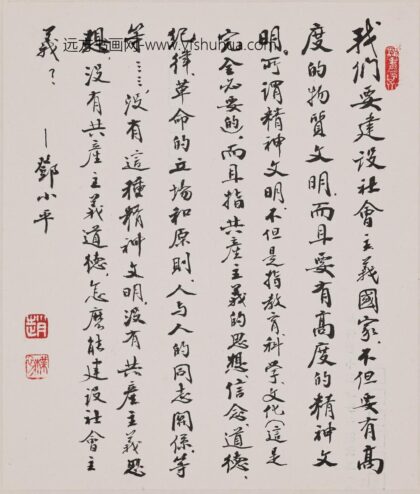 远方书画网 - www.yfshuhua.com
我們要建設社會主義國家,不但要有高
度的物質文明,而且要有高度的精神文
明。所謂精神文明,不但是指教育、科學、文化(這是
完全必要的),而且指共產主義的思想、信念、道德、
紀律,革命的立場和原則,人与人的同志關係等
等……没有這種精神文明,没有共產主義思
想,没有共產主義道德,怎麼能建設社會主
義?
—鄧小平
趙